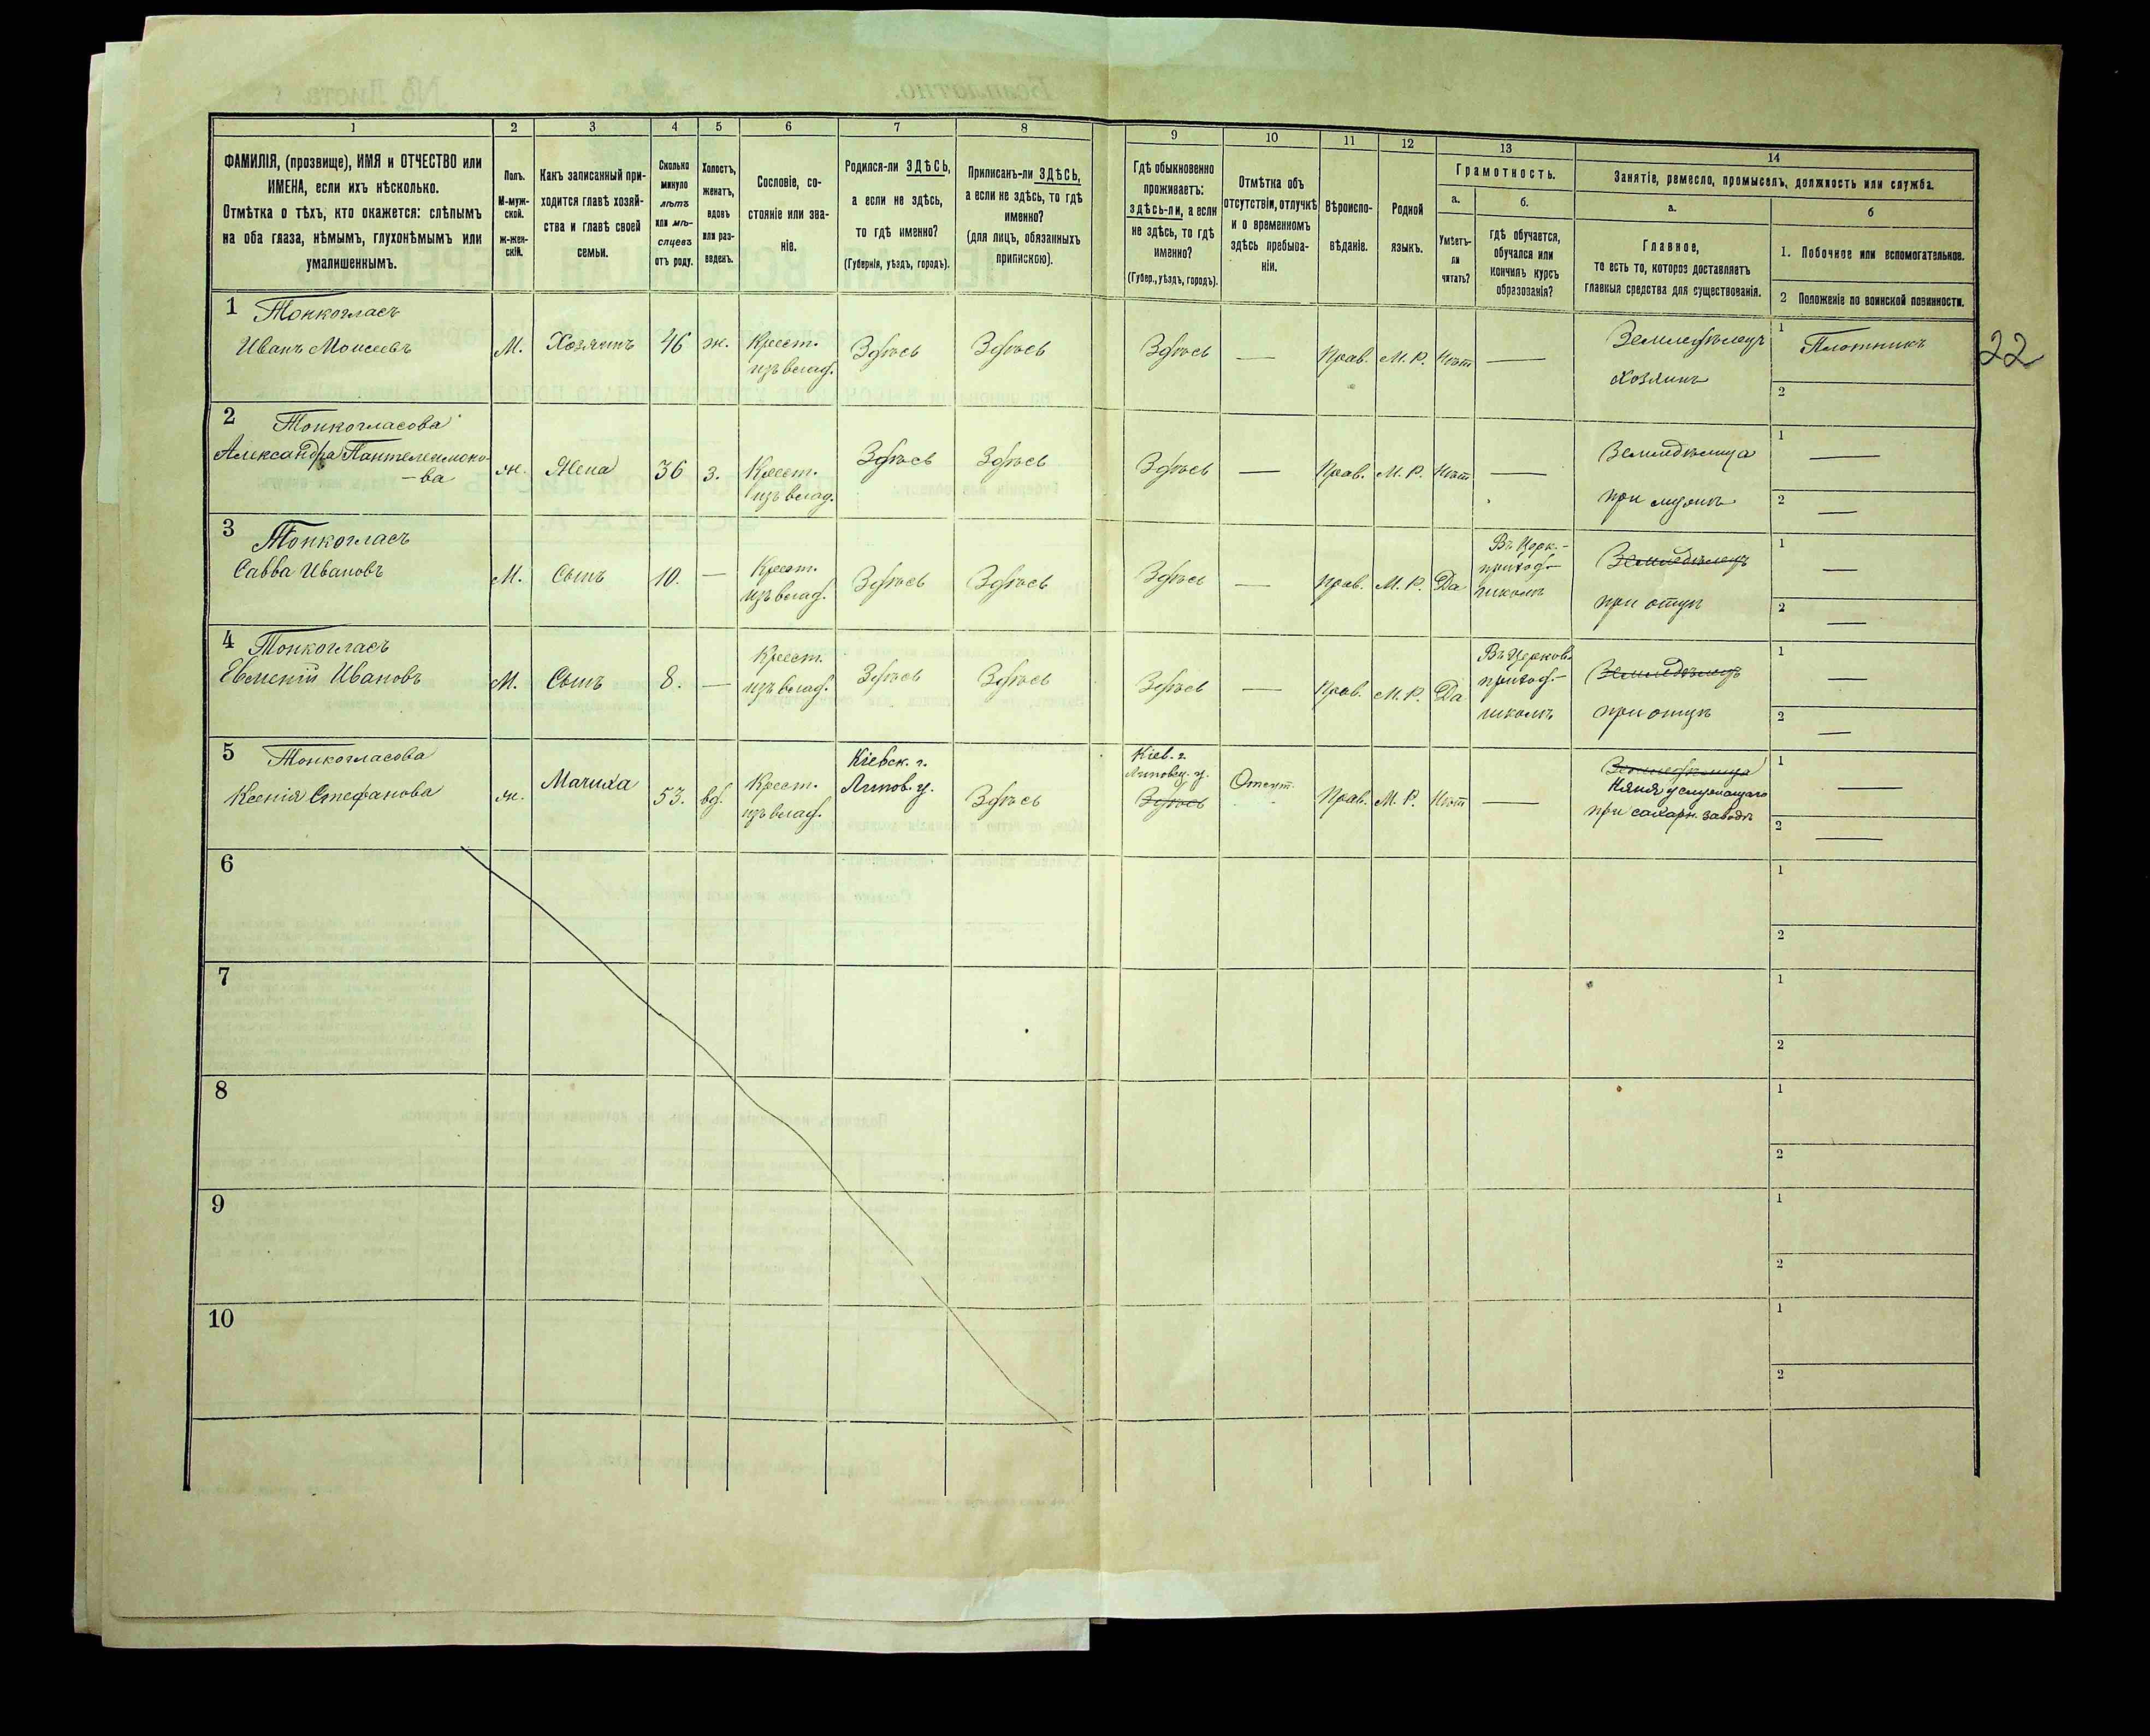 1 2 3 4 5 6 7 8 9 10 11 12 13 14
ФАМИЛІЯ, (прозвище), ИМЯ и ОТЧЕСТВО или
ИМЕНА, если ихъ нѣсколько.
Отмѣтка о тѣхъ, кто окажется: слѣпымъ
на оба глаза, нѣмымъ, глухонѣмымъ или
умалишеннымъ.
Полъ.
М-муж-
ской.
ж-жен-
скій.
Какъ записанный при-
ходится главѣ хозяй-
ства и главѣ своей
семьи.
Сколько
минуло
лѣтъ
или мѣ-
сяцевъ
отъ роду.
Холостъ,
женатъ,
вдовъ
или раз-
веденъ.
Сословіе, со-
стояніе или зва-
ніе.
Родился-ли ЗДѢСЬ,
а если не здѣсь,
то гдѣ именно?
(Губернія, уѣздъ, городъ).
Приписанъ-ли ЗДѢСЬ,
а если не здѣсь, то гдѣ
именно?
(для лицъ, обязанныхъ
припискою).
Гдѣ обыкновенно
проживаетъ:
здѣсь-ли, а если
не здѣсь, то гдѣ
именно?
(Губер., уѣздъ, городъ).
Отмѣтка объ
отсутствіи, отлучкѣ
и о временномъ
здѣсь пребыва-
ніи.
Вѣроиспо-
вѣданіе.
Родной
языкъ.
Грамотность.
а.
Умѣетъ-
ли
читать?
б.
гдѣ обучается,
обучался или
кончилъ курсъ
образованія?
Занятіе, ремесло, промыселъ, должность или служба.
а.
Главное,
то есть то, которое доставляетъ
главныя средства для существованія.
б
1. Побочное или вспомогательное.
2 Положеніе по воинской повинности.
1 Тонкогласъ
Иванъ Моисеевъ
М.
Хозяинъ
46
ж.
Крест.
изъ влад.
Здѣсь
Здѣсь
Здѣсь
—
Прав.
М. Р.
Нѣт
—
Земледѣлецъ
хозяинъ
1 Плотникъ
2
22
2 Тонкогласова
Александра Пантелеимоно-
-ва
ж.
Жена
36
з.
Крест.
изъ влад.
Здѣсь
Здѣсь
Здѣсь
—
Прав.
М. Р.
Нѣт
—
Земледѣлица
при мужѣ
1 —
2 —
3 Тонкогласъ
Савва Ивановъ
М.
Сынъ
10.
—
Крест.
изъ влад.
Здѣсь
Здѣсь
Здѣсь
—
Прав.
М. Р.
Да
Въ Церк.-
приход-
школѣ
Земледѣлецъ
при отцѣ
1 —
2 —
4 Тонкогласъ
Евменій Ивановъ
М.
Сынъ
8.
—
Крест.
изъ влад.
Здѣсь
Здѣсь
Здѣсь
—
Прав.
М. Р.
Да
Въ Церков.
приход.-
школѣ
Земледѣлецъ
при отцѣ
1 —
2 —
5 Тонкогласова
Ксенія Стефанова
ж.
Мачиха
53.
вд.
Крест.
изъ влад.
Кіевск. г.
Липов. у.
Здѣсь
Кіев. г.
Липовец. у.
Здѣсь
Отсут.
Прав.
М. Р.
Нѣт
—
Земледѣлица
Няня у служащаго
при сахарн. заводѣ
1 —
2 —
6
1
2
7
1
2
8
1
2
9
1
2
10
1
2